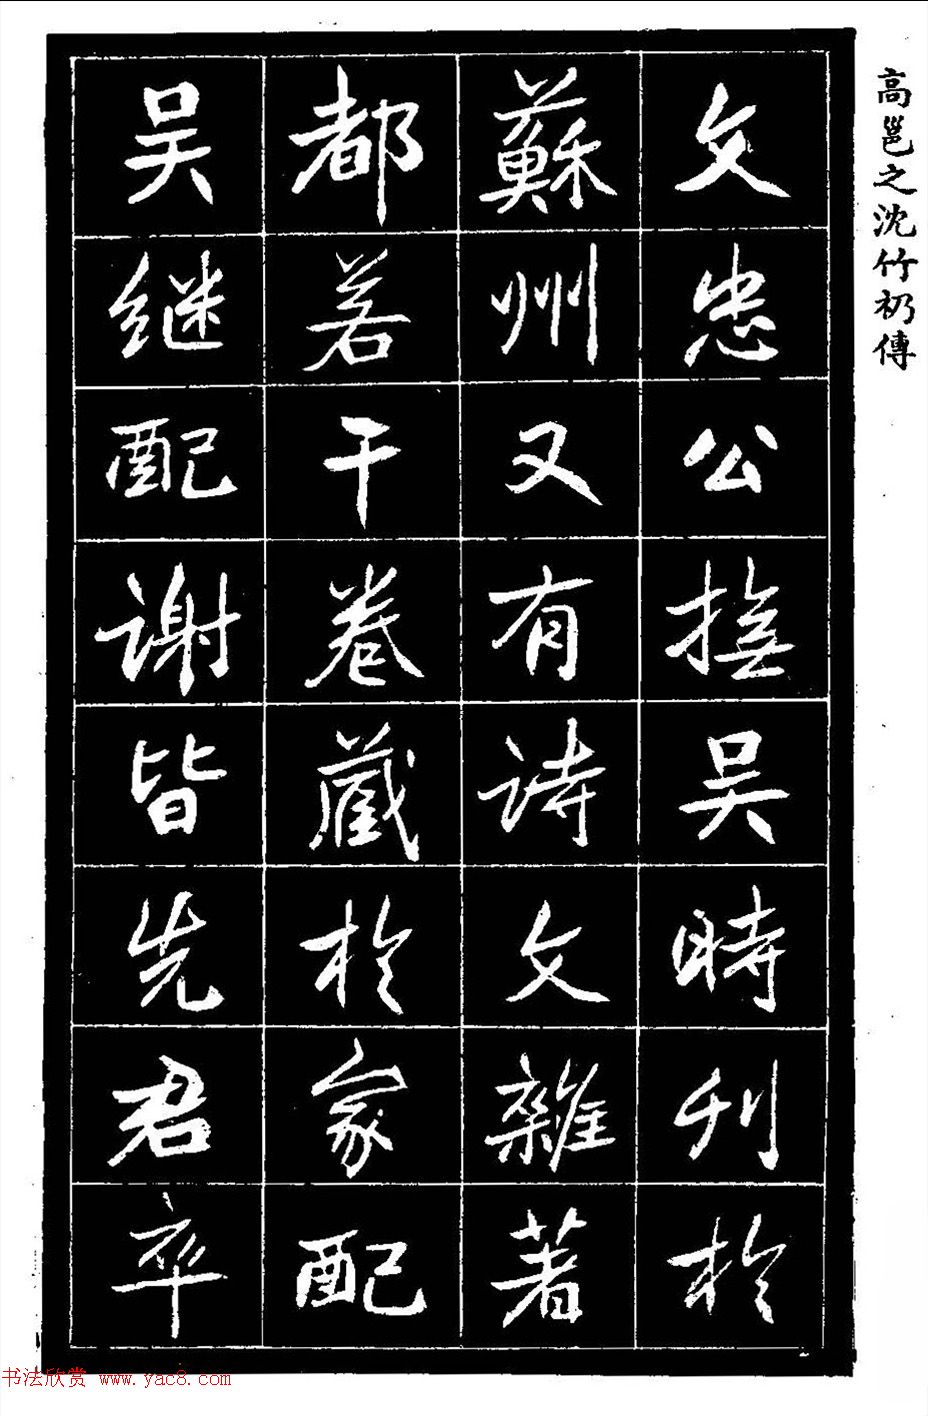 高邕之沈竹礽傳
文忠公撫吴時刋於
蘇州又有詩文雜著
都若干卷藏於家配
吴継配谢皆先君卒
书法欣赏 www.yac8.com